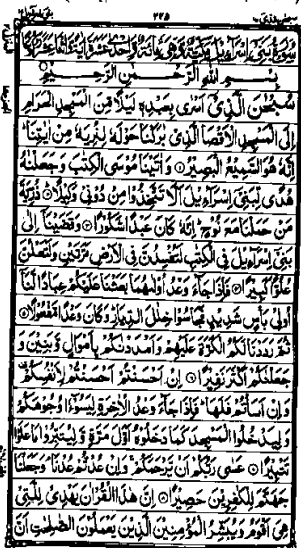 ٢٢٥
سُبْحٰنَ الَّذِيْٓ اَسْرٰى بِعَبْدِهٖ لَيْلًا مِّنَ الْمَسْجِدِ الْحَرَامِ
اِلَى الْمَسْجِدِ الْاَقْصَا الَّذِيْ بٰرَكْنَا حَوْلَهٗ لِنُرِيَهٗ مِنْ اٰيٰتِنَا
اِنَّهٗ هُوَ السَّمِيْعُ الْبَصِيْرُ ۝ وَاٰتَيْنَا مُوْسَى الْكِتٰبَ وَجَعَلْنٰهُ
هُدًى لِّبَنِيْٓ اِسْرَآءِيْلَ اَلَّا تَتَّخِذُوْا مِنْ دُوْنِيْ وَكِيْلًا ۝ ذُرِّيَّةَ
مَنْ حَمَلْنَا مَعَ نُوْحٍ اِنَّهٗ كَانَ عَبْدًا شَكُوْرًا ۝ وَقَضَيْنَآ اِلٰى
بَنِيْٓ اِسْرَآءِيْلَ فِي الْكِتٰبِ لَتُفْسِدُنَّ فِي الْاَرْضِ مَرَّتَيْنِ وَلَتَعْلُنَّ
عُلُوًّا كَبِيْرًا ۝ فَاِذَا جَآءَ وَعْدُ اُوْلٰىهُمَا بَعَثْنَا عَلَيْكُمْ عِبَادًا لَّنَآ
اُولِيْ بَاْسٍ شَدِيْدٍ فَجَاسُوْا خِلٰلَ الدِّيَارِ وَكَانَ وَعْدًا مَّفْعُوْلًا ۝
ثُمَّ رَدَدْنَا لَكُمُ الْكَرَّةَ عَلَيْهِمْ وَاَمْدَدْنٰكُمْ بِاَمْوَالٍ وَّبَنِيْنَ وَ
جَعَلْنٰكُمْ اَكْثَرَ نَفِيْرًا ۝ اِنْ اَحْسَنْتُمْ اَحْسَنْتُمْ لِاَنْفُسِكُمْ
وَاِنْ اَسَاْتُمْ فَلَهَا فَاِذَا جَآءَ وَعْدُ الْاٰخِرَةِ لِيَسُوْٓءٗا وُجُوْهَكُمْ
وَلِيَدْخُلُوا الْمَسْجِدَ كَمَا دَخَلُوْهُ اَوَّلَ مَرَّةٍ وَّلِيُتَبِّرُوْا مَا عَلَوْا
تَتْبِيْرًا ۝ عَسٰى رَبُّكُمْ اَنْ يَّرْحَمَكُمْ وَاِنْ عُدْتُّمْ عُدْنَا وَجَعَلْنَا
جَهَنَّمَ لِلْكٰفِرِيْنَ حَصِيْرًا ۝ اِنَّ هٰذَا الْقُرْاٰنَ يَهْدِيْ لِلَّتِيْ
هِيَ اَقْوَمُ وَيُبَشِّرُ الْمُؤْمِنِيْنَ الَّذِيْنَ يَعْمَلُوْنَ الصّٰلِحٰتِ اَنَّ